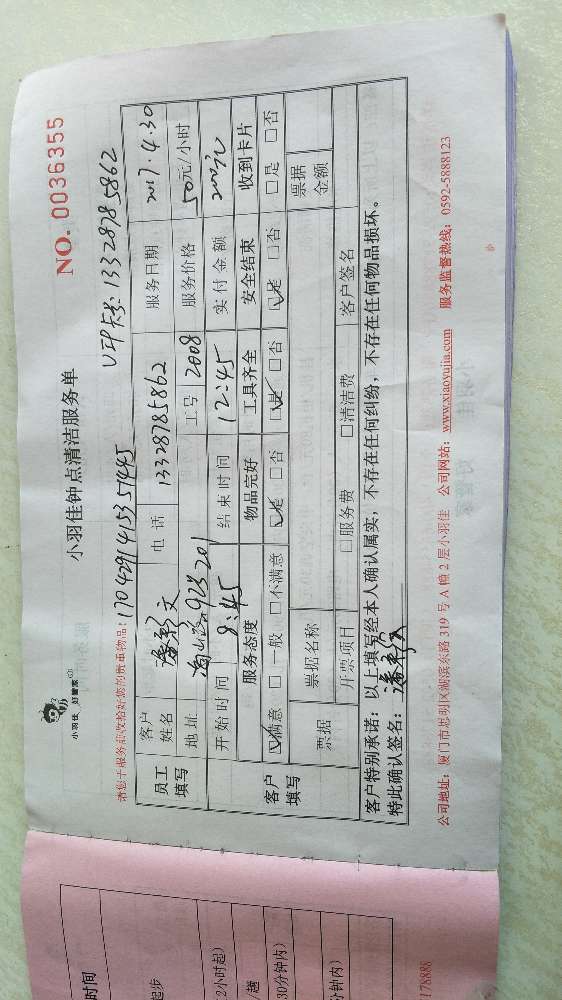 小羽佳 好管家
小羽佳钟点清洁服务单
NO. 0036355
请您于服务前收拾好您的贵重物品:
17042914153157445
VIP卡号: 13328785862
员工填写
客户姓名
文
电话
13328785862
服务日期
2017.4.30
地址
201
工号
2008
服务价格
50元/小时
开始时间
8:45
结束时间
12:45
实付金额
200元
客户填写
服务态度
物品完好
工具齐全
安全结束
收到卡片
满意 □一般 □不满意
□是 □否
□是 □否
□是 □否
□是 □否
票据
票据名称
票据金额
开票项目
□服务费
□清洁费
客户签名
客户特别承诺: 以上填写经本人确认属实, 不存在任何纠纷, 不存在任何物品损坏。
特此确认签名:
公司地址: 厦门市思明区湖滨东路 319 号 A 幢 2 层小羽佳 公司网站: www.xiaoyujia.com 服务监督热线: 0592-5888123
时间
起步
2小时起)
/趟
30分钟内)
分钟内)
178888